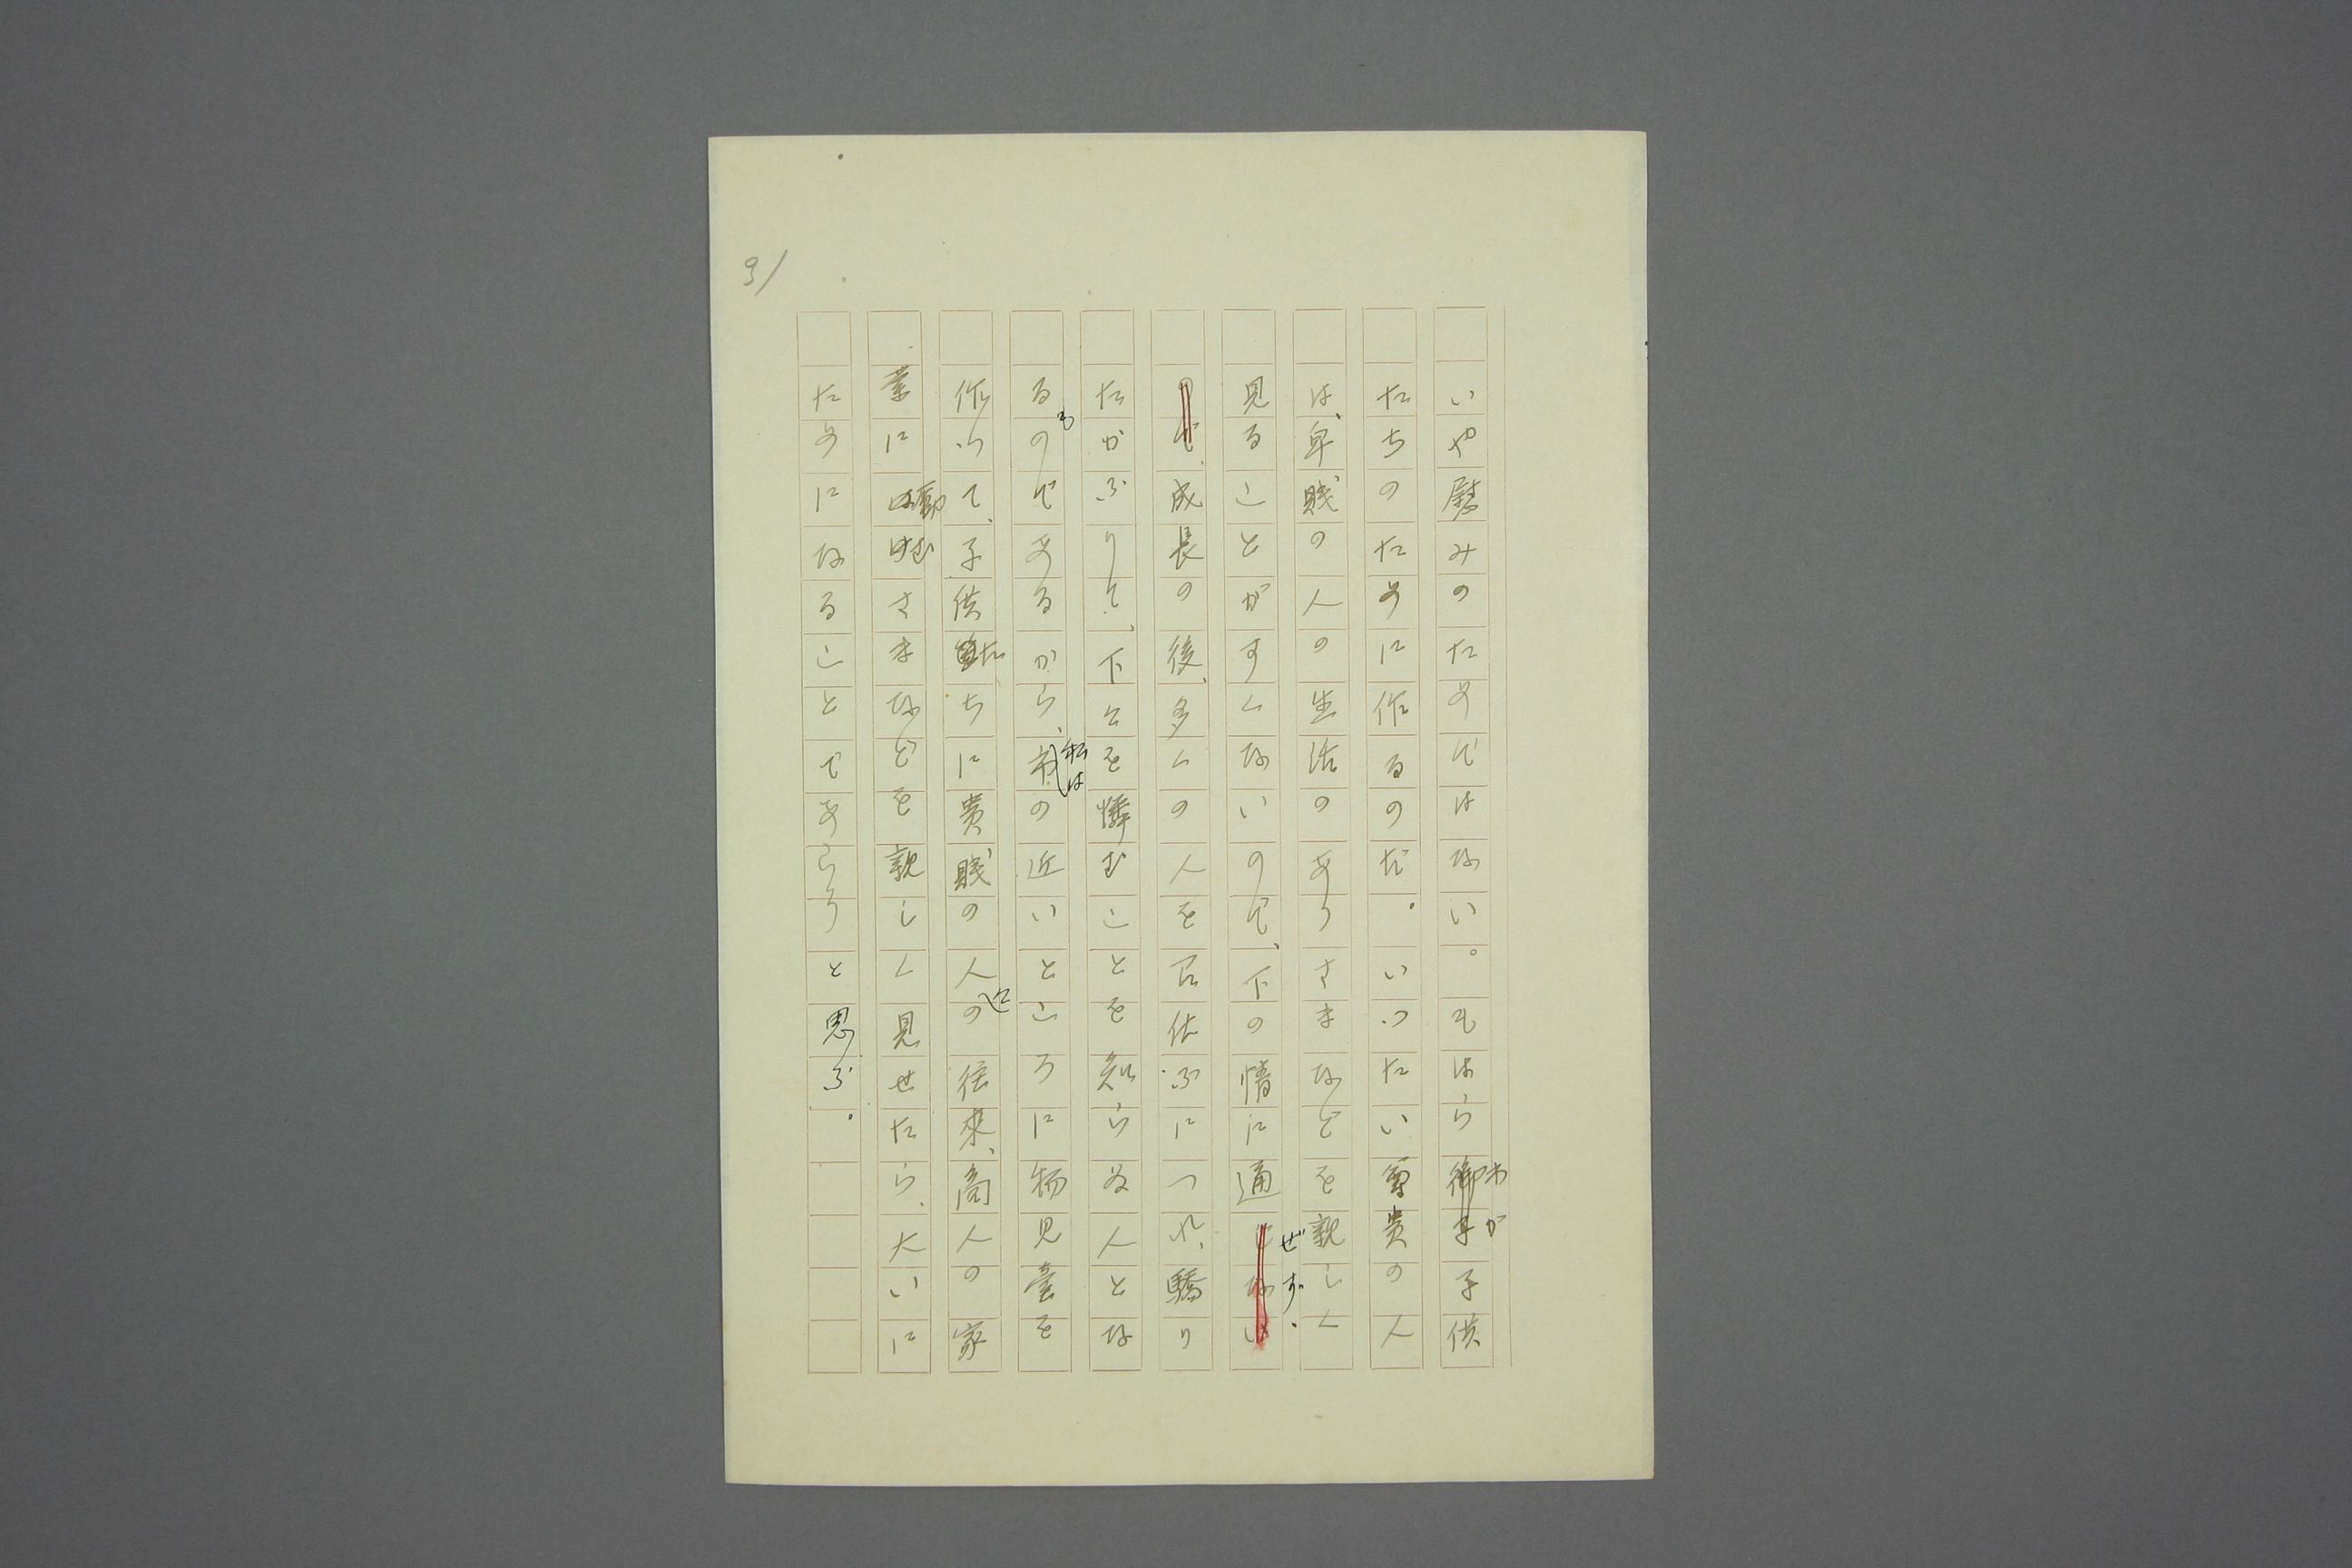 91
いや慰みのためではない。もはらわが子供
たちのために作るのだ。いつたい尊貴の人
は、卑賤の人の生活のありさまなどを親しく
見ることがすくないので、下の情に通ぜず、
成長の後、多くの人を召仕ふにつれ、驕り
たかぶりて、下々を憐むことを知らぬ人とな
るものであるから、私は市の近いところに物見臺を
作つて、子供たちに貴賤の人の往来、商人の家
業に勤むさまなどを親しく見せたら、大いに
ためになることであらうと思ふ。